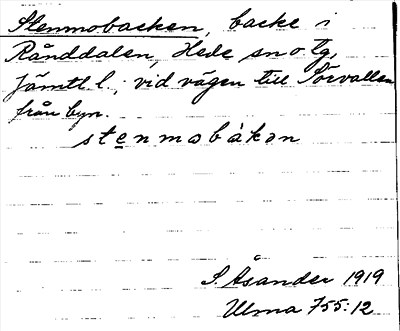 Stenmobacken, backe i
Rånddalen, Hede sn o. tg,
Jämtl. l.; vid vägen till Sörvallen
från byn.
stenmobàkən
S. Åsander 1919
Ulma 755:12